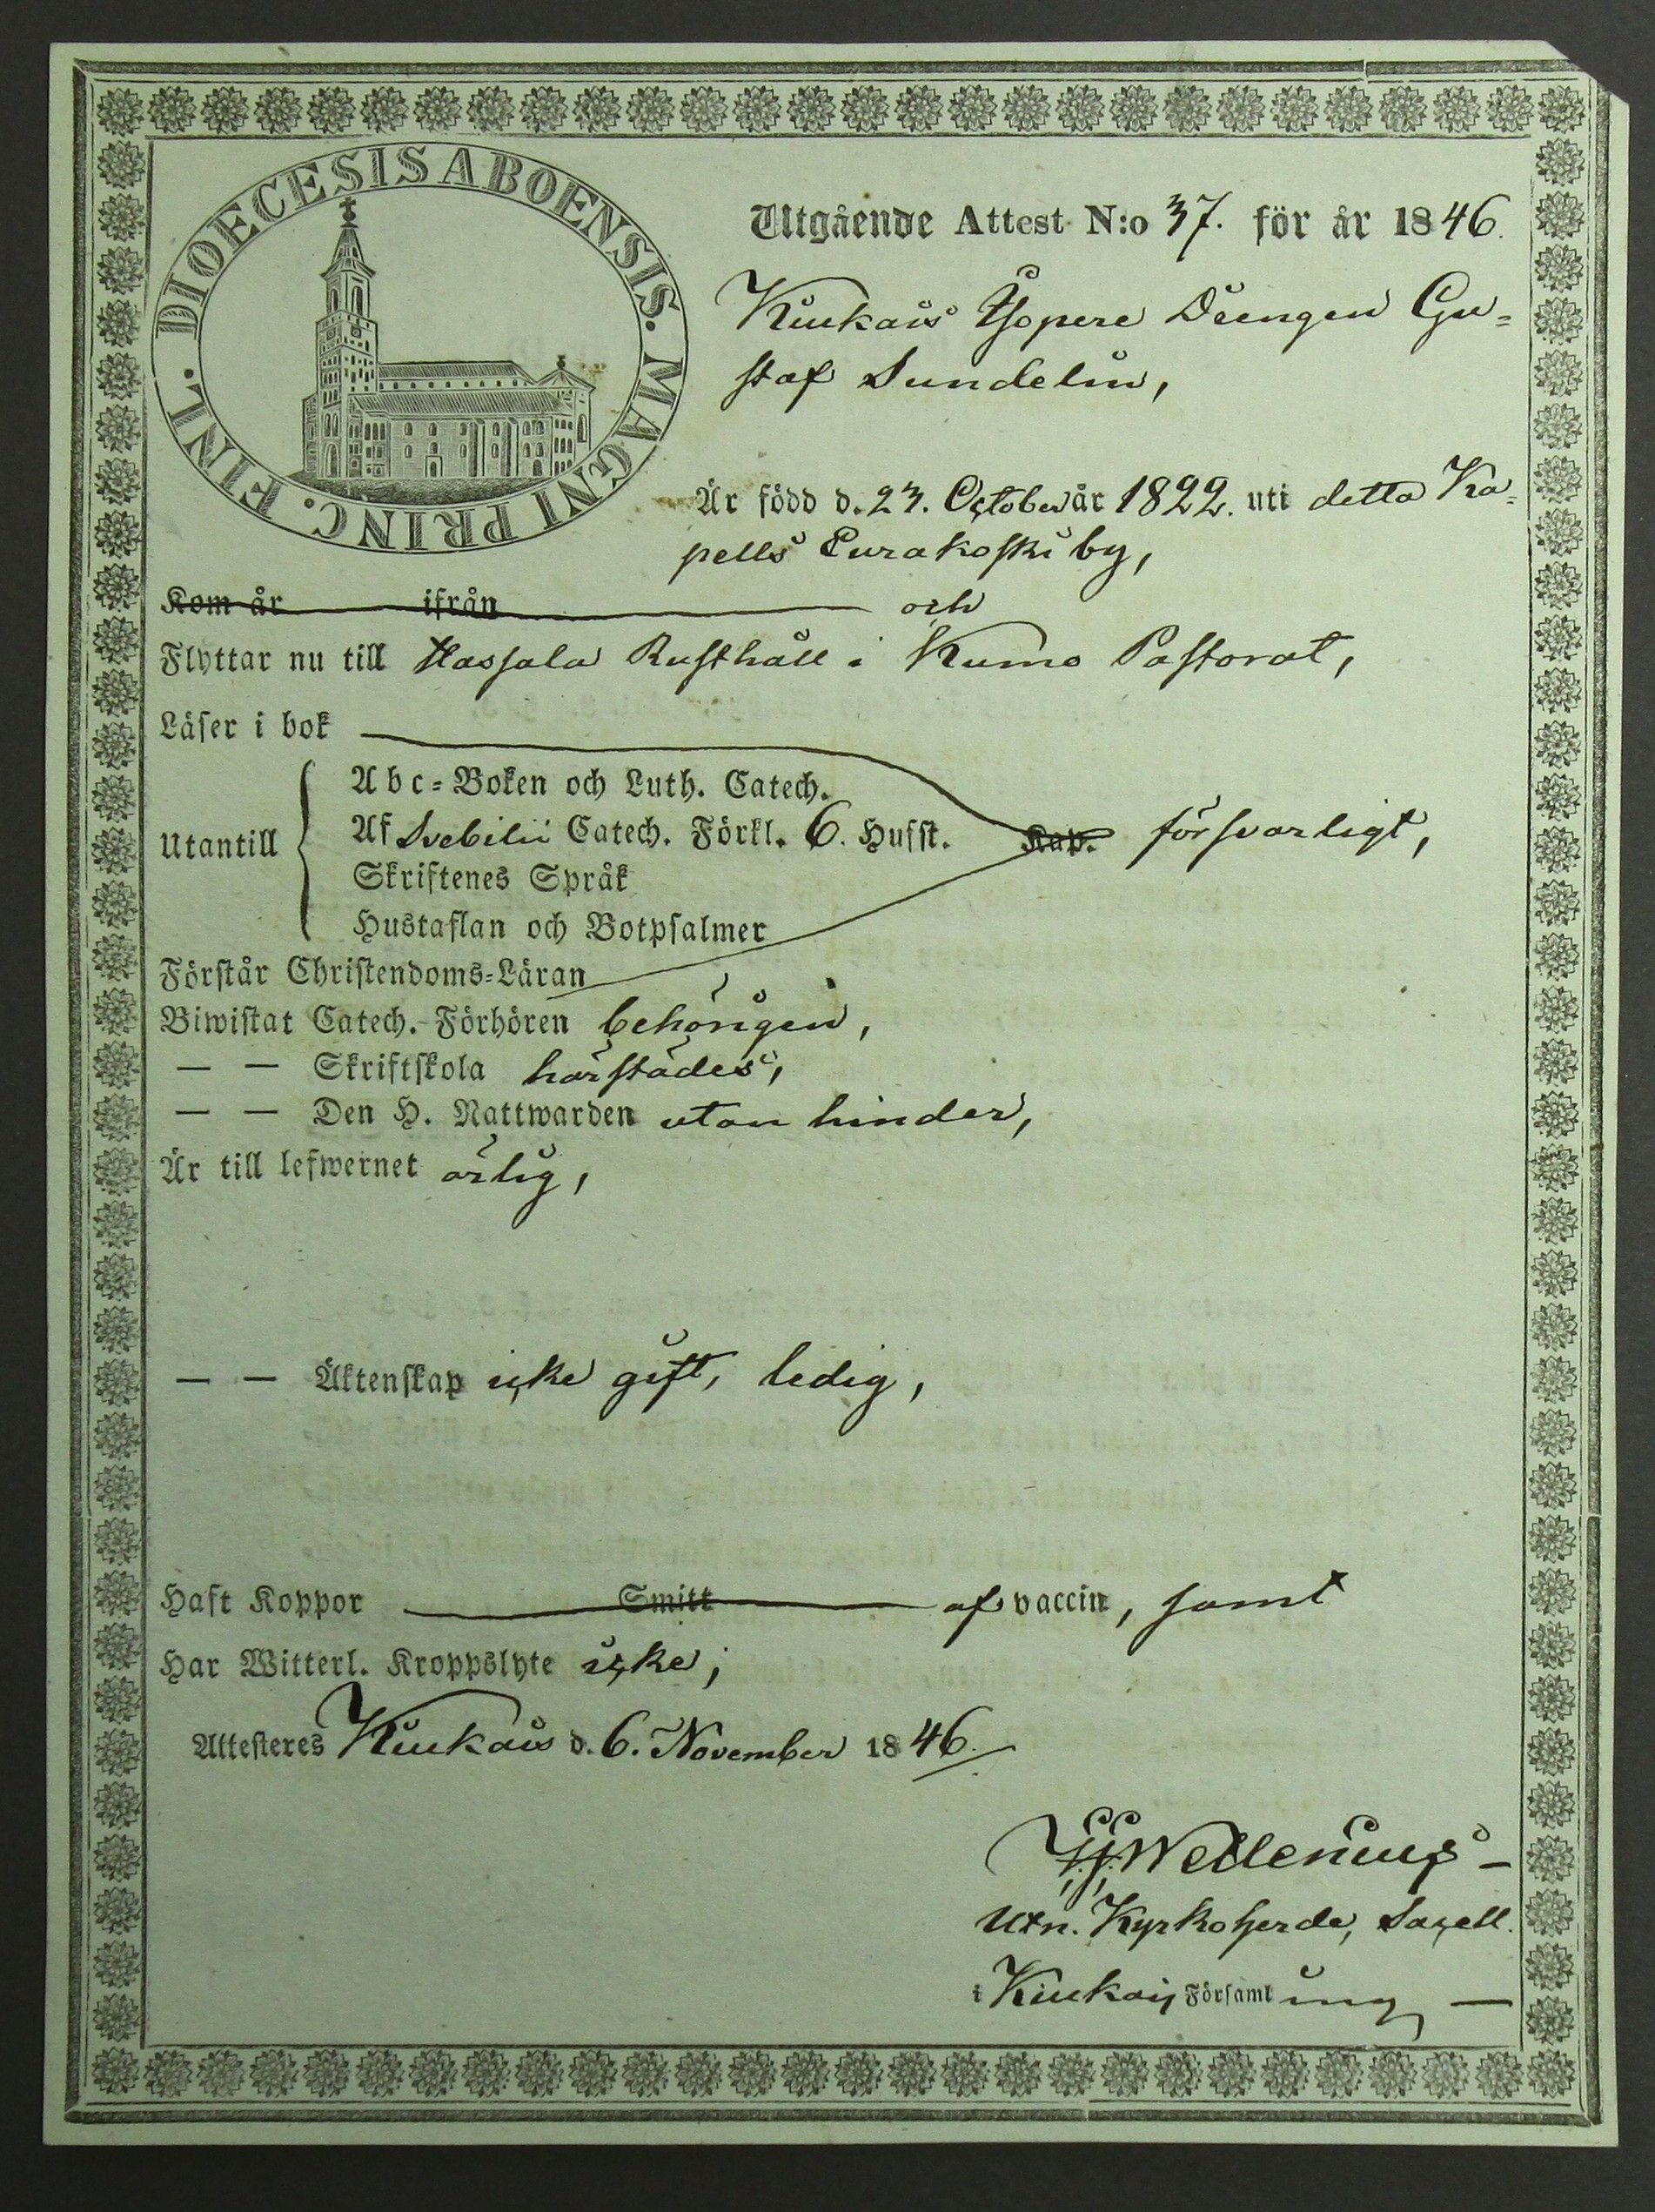 DIOECESIS ABOENSIS. MAGNI PRINC. FINL.
Utgående Attest N:o 37. för år 1846.
Kiukais Isopere Drengen Gu=
staf Sundelin,
Är född d. 23. October år 1822. uti detta Ka=
pells Eurakoski by,
Kom år ifrån och
Flyttar nu till Hassala Rusthåll i Kumo Pastorat,
Läser i bok
Abc=Boken och Luth. Catech.
Utantill Af Svebilii Catech. Förkl. 6. Hufst. Kap. försvarligt,
Skriftenes Språk
Hustaflan och Botpsalmer
Förstår Christendoms=Läran
Biwistat Catech.-Förhören behörigen,
— — Skriftskola härstädes,
— — Den H. Nattwarden utan hinder,
Är till lefwernet ärlig,
— — Äktenskap icke gift, ledig,
Haft Koppor Smitt af vaccin, samt
Har Witterl. Kroppslyte icke;
Attesteres Kiukais d. 6. November 1846.
Wellenius –
Utn. Kyrkoherde, Sacell.
i Kiukais Församling —